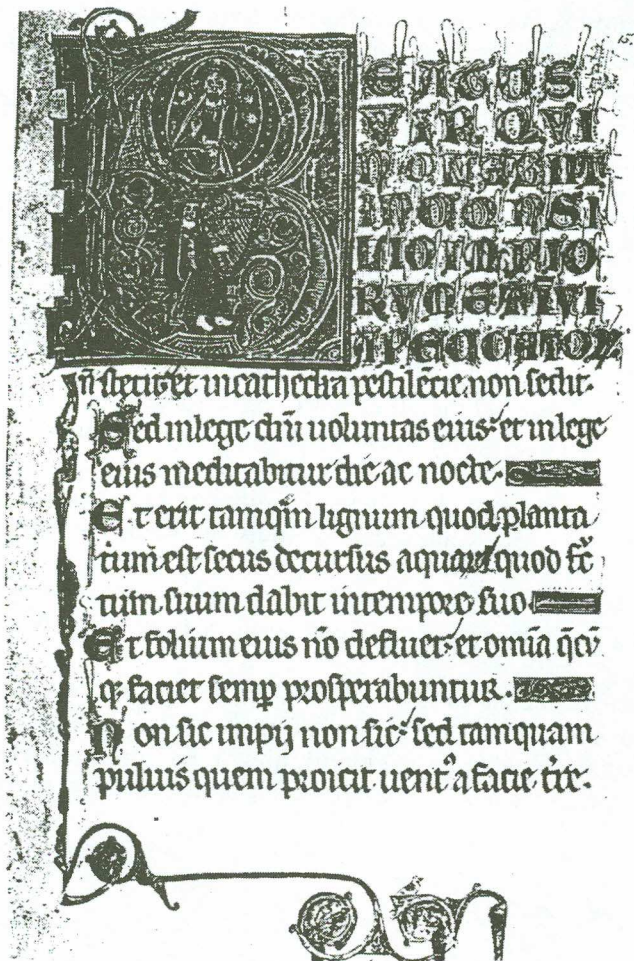 BEATUS
VIR QVI
NON ABIIT
IN CONSI
LIO INPIO
RVM ET IN VI
A PECCATOR
n̄ stetit: et in cathedra pestilēcie non sedit.
Sed in lege dn̄i uoluntas eius: et in lege
eius meditabitur die ac nocte.
Et erit tamqm̄ lignum quod planta
tum est secus decursus aquarꝝ quod fc̄
tum suum dabit in tempore suo.
Et folium eius nō defluet: et omīa q̄cū
qꝫ faciet semꝑ prosperabuntur.
Non sic impij non sic: sed tamquam
puluis quem proicit uentꝰ a facie tr̄e.